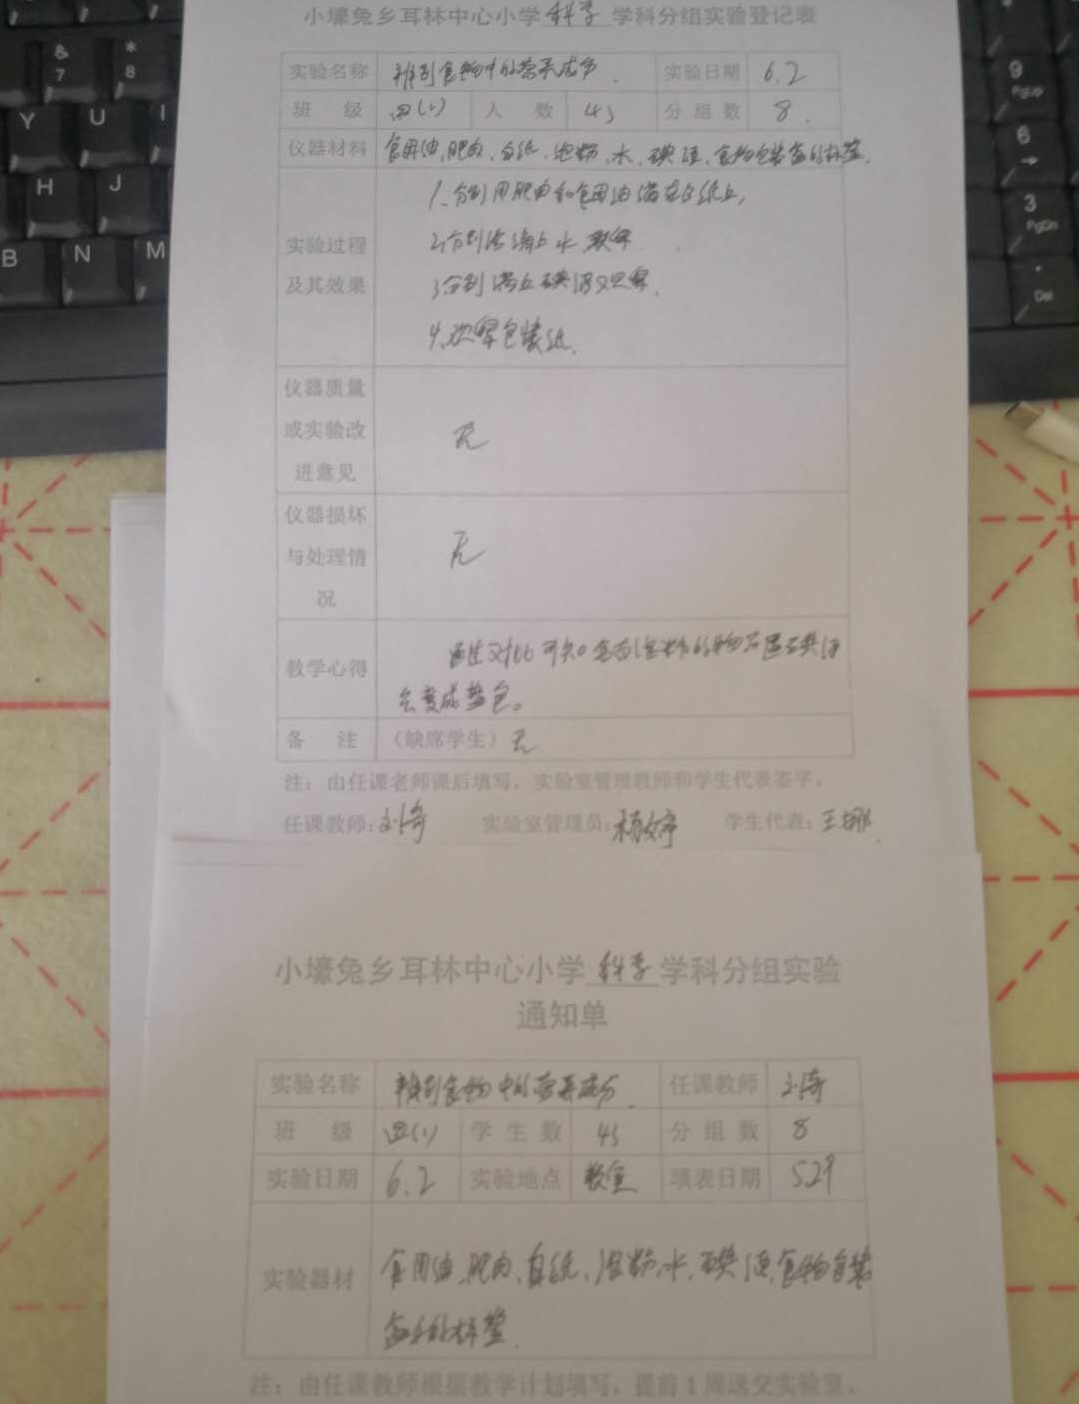 & 7
* 8
Y U I
H J
B N M
9 PgUp
6 →
3 PgDn
. Del
小壕兔乡耳林中心小学 科学 学科分组实验登记表
实验名称 辨别食物中的营养成分. 实验日期 6.2
班 级 四(1) 人 数 45 分组数 8.
仪器材料 食用油、肥肉、白纸、淀粉、水、碘酒、食物包装盒的标签.
实验过程及其效果
1、分别用肥肉和食用油滴在白纸上,
2、分别滴上水 观察
3、分别滴上碘酒 观察.
4、观察包装纸.
仪器质量或实验改进意见 无
仪器损坏与处理情况 无
教学心得 通过对比可知 含有淀粉的物品遇到碘酒
会变成蓝色。
备 注 (缺席学生) 无
注:由任课老师课后填写,实验室管理教师和学生代表签字。
任课教师:刘奇 实验室管理员:杨婷 学生代表:王娜
小壕兔乡耳林中心小学 科学 学科分组实验
通知单
实验名称 辨别食物中的营养成分. 任课教师 刘奇
班 级 四(1) 学生数 45 分组数 8
实验日期 6.2 实验地点 教室 填表日期 5.29
实验器材 食用油、肥肉、白纸、淀粉、水、碘酒、食物包装
盒上的标签.
注:由任课教师根据教学计划填写,提前1周送交实验室。